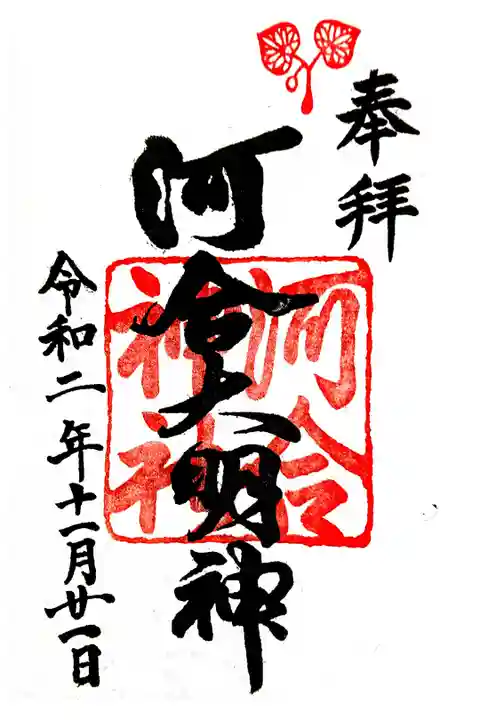 奉拝
河合大明神
河合
神社
令和二年十一月廿一日